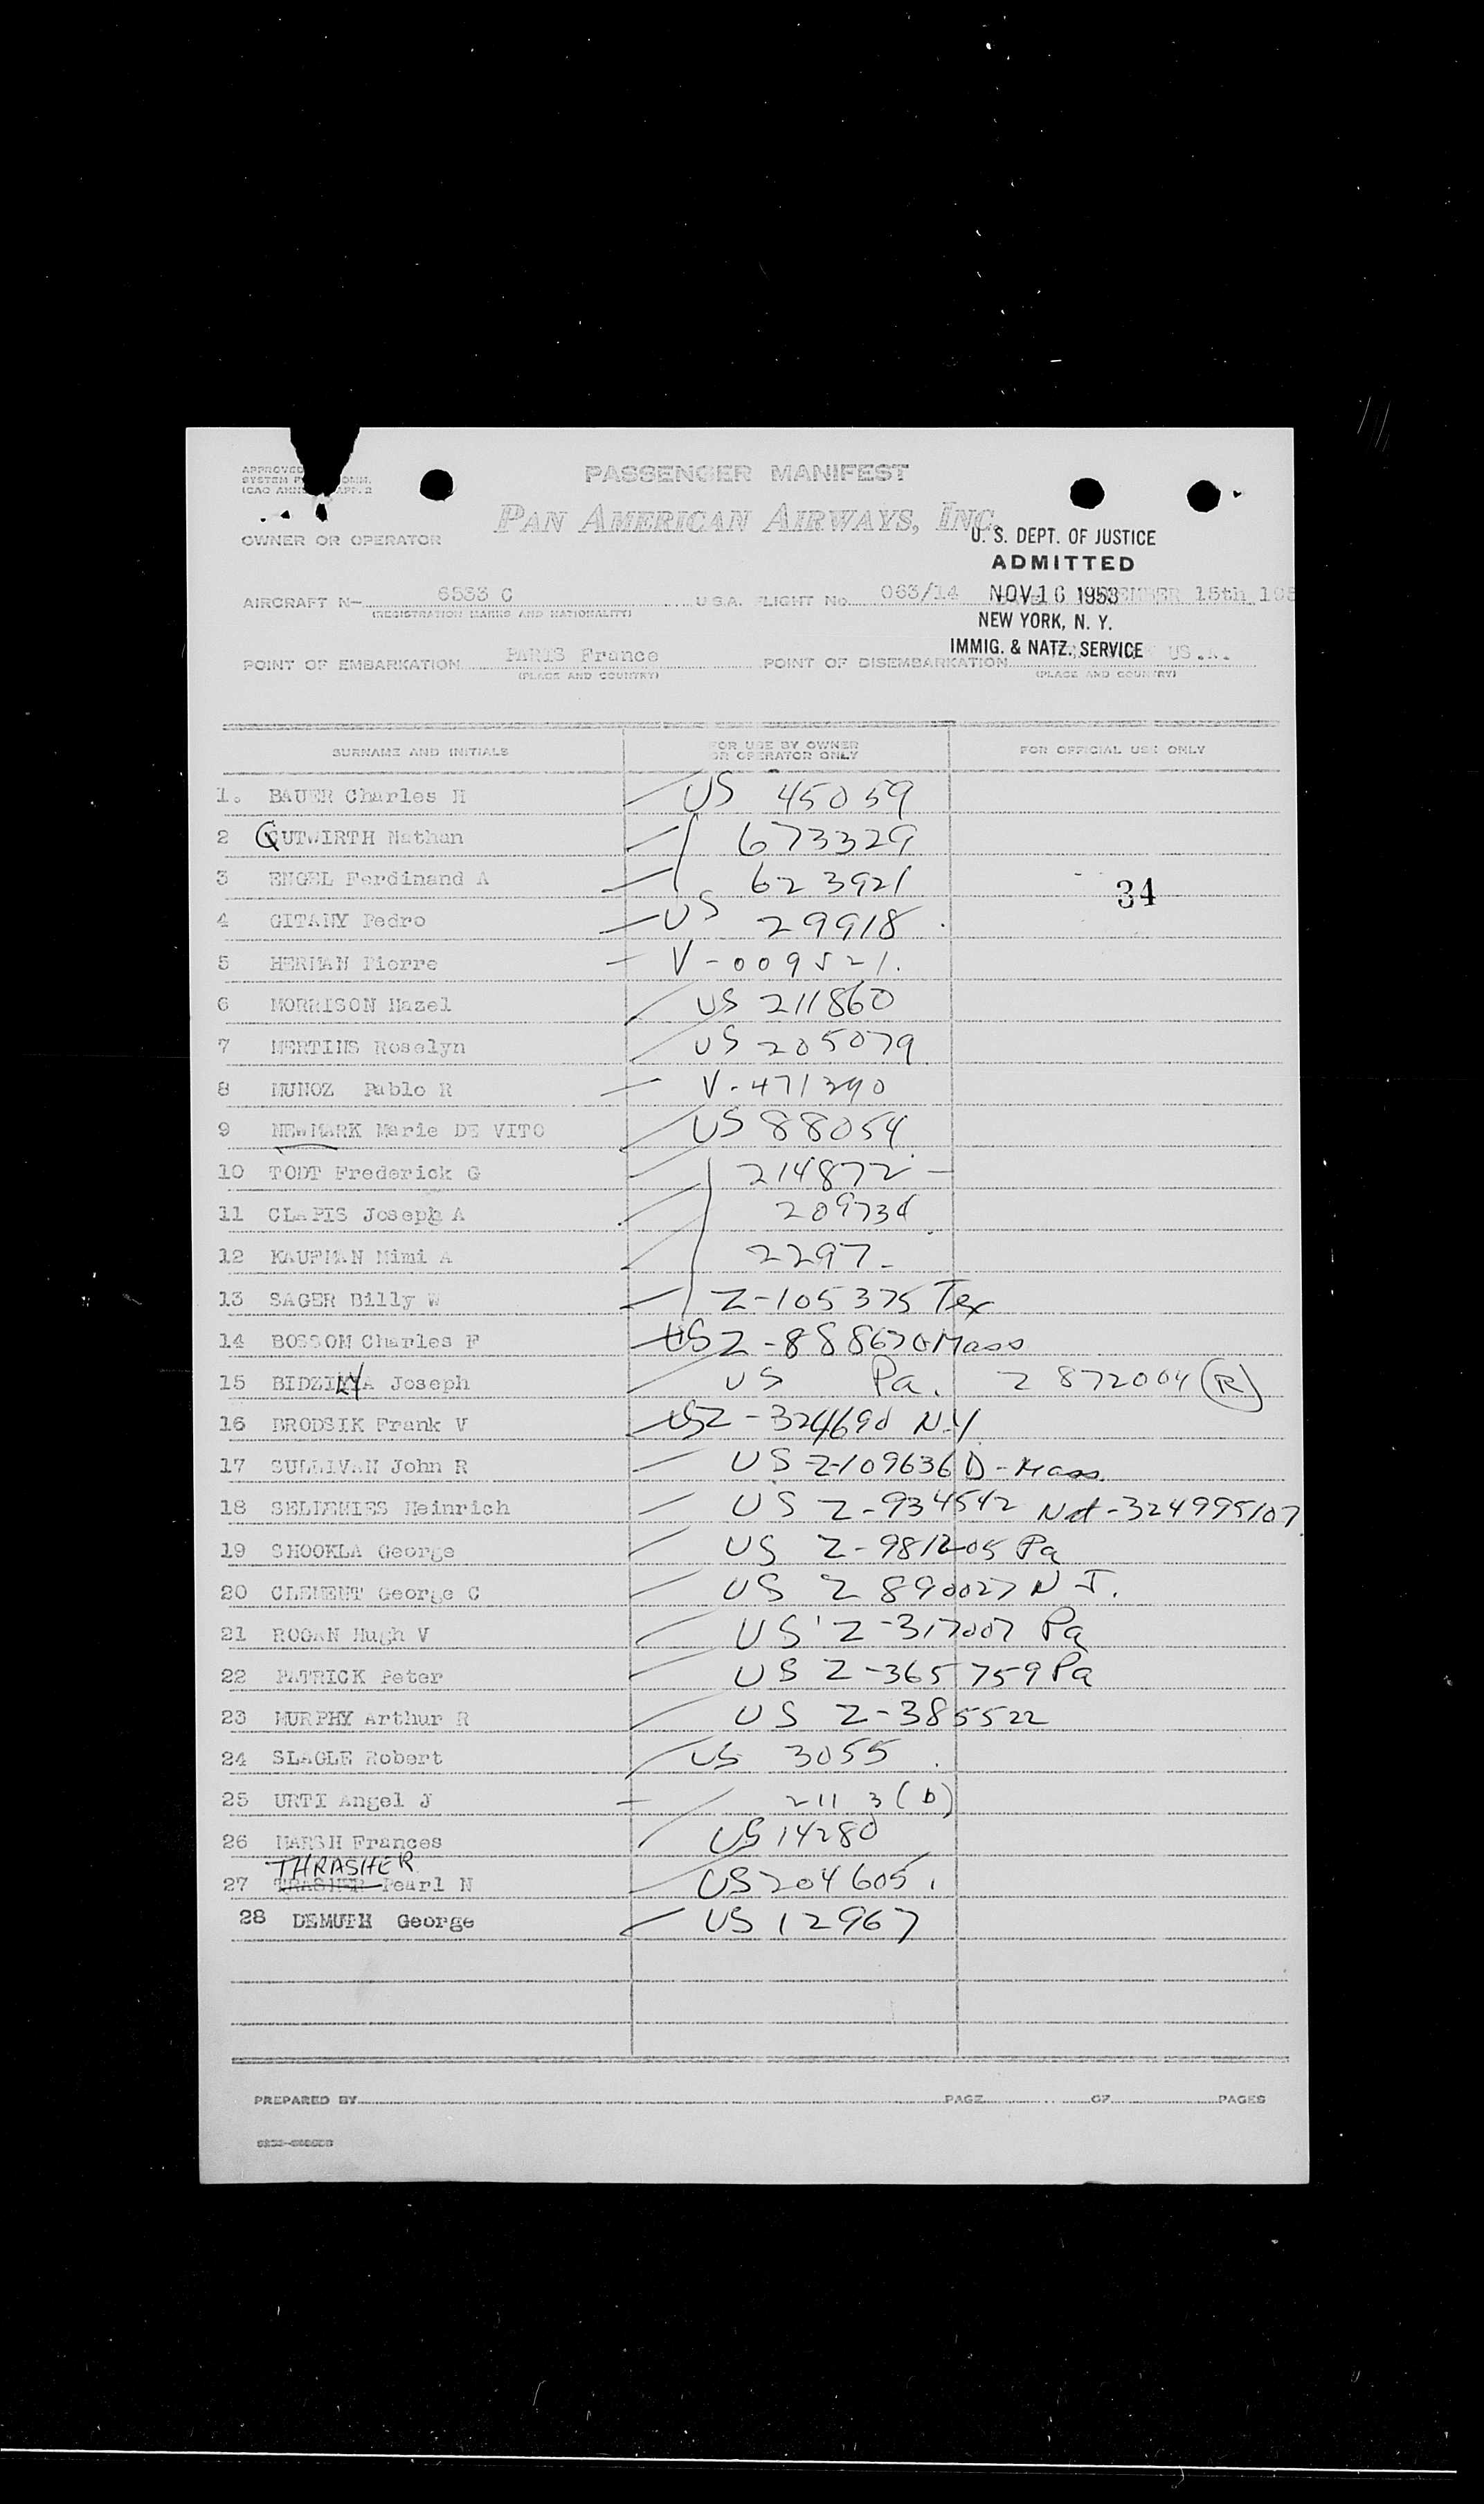 APPROVED
SYSTEM COMM.
ICAO APP. 2
PASSENGER MANIFEST
PAN AMERICAN AIRWAYS, INC.
OWNER OR OPERATOR
U. S. DEPT. OF JUSTICE
ADMITTED
AIRCRAFT N— 6533 C U.S.A. FLIGHT No. 063/14 NOV 16 1953 15th
(REGISTRATION MARKS AND NATIONALITY)
NEW YORK, N. Y.
IMMIG. & NATZ. SERVICE
POINT OF EMBARKATION PARIS France POINT OF DISEMBARKATION US.A.
(PLACE AND COUNTRY) (PLACE AND COUNTRY)
SURNAME AND INITIALS FOR USE BY OWNER OR OPERATOR ONLY FOR OFFICIAL USE ONLY
1. BAUER Charles H US 45059
2 GUTWIRTH Nathan 673329
3 ENGEL Ferdinand A 623921 34
4 GITANY Pedro US 29918
5 HERMAN Pierre V-009521.
6 MORRISON Hazel US 211860
7 MERTINS Roselyn US 205079
8 MUNOZ Pablo R V-471390
9 NEWMARK Marie DE VITO US 88054
10 TODT Frederick G 214872 -
11 CLAPIS Joseph A 209734
12 KAUFMAN Mimi A 2297-
13 SAGER Billy W Z-105375 Tex
14 BOSSOM Charles F US Z-888670 Mass
15 Joseph US Pa. Z 872004 (R)
16 BRODSIK Frank V US Z-324690 N.Y
17 SULLIVAN John R US Z-109636 D-Mass
18 Heinrich US Z-934542 Nat-324995107
19 SHOOKLA George US Z-981205 Pa
20 CLEMENT George C US Z 890027 N J.
21 ROGAN Hugh V US Z-317007 Pa
22 PATRICK Peter US Z-365759 Pa
23 MURPHY Arthur R US Z-385522
24 SLAGLE Robert US 3055
25 URTI Angel J 211 3 (D)
26 MARSH Frances US 14280
THRASHER
27 TRASHER Pearl N US 204605.
28 DEMUTH George US 12967
PREPARED BY PAGE OF PAGES